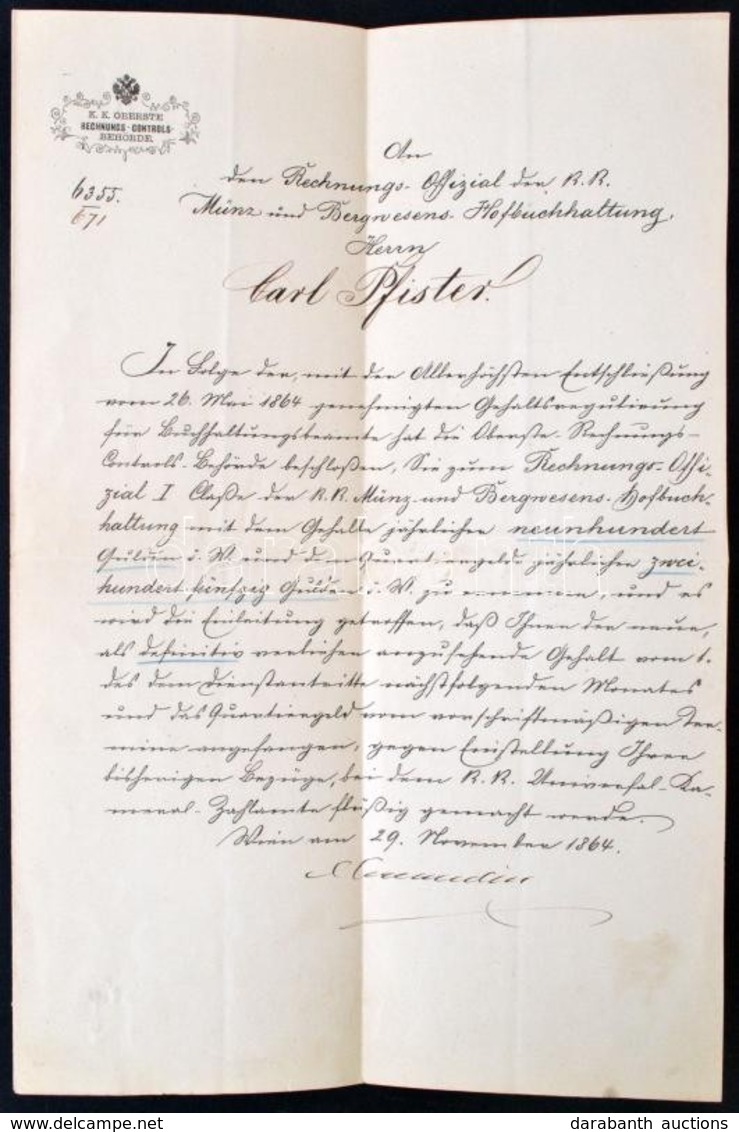 K. K. OBERSTE
RECHNUNGS-CONTROLS-
BEHÖRDE.
6355.
671
An
den Rechnungs-Offizial der K. K.
Münz und Bergwesens-Hofbuchhaltung,
Herrn
Carl Pfister.
In Folge der, mit der Allerhöchsten Entschließung
vom 26. Mai 1864 genehmigten Gehaltsregulirung
für Buchhaltungsbeamte hat die Oberste-Rechnungs-
Controls-Behörde beschloßen, Sie zum Rechnungs-Offi-
zial I Claße der K. K. Münz- und Bergwesens-Hofbuch-
haltung mit dem Gehalte jährlicher neunhundert
Gulden ö. W. und dem Quartiergelde jährlicher zwei-
hundert fünfzig Gulden ö. W. zu ernennen, und es
wird die Einleitung getroffen, daß Ihnen der neue,
als definitiv verliehen anzusehende Gehalt vom 1.
des dem Dienstantritte nächstfolgenden Monates
und das Quartiergeld vom vorschriftmäßigen Ter-
mine angefangen, gegen Einstellung Ihrer
bisherigen Bezüge, bei dem K. K. Universal-Ka-
meral-Zahlamte flüßig gemacht werde.
Wien am 29. November 1864.
darabanth
darabanth auctions